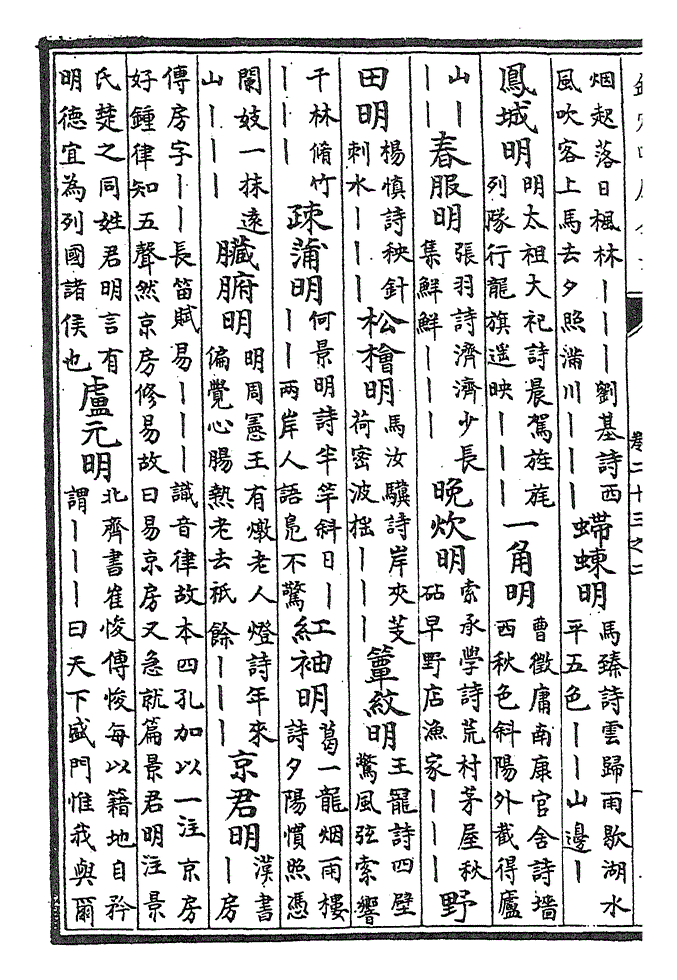 卷二十三之二
烟起落日楓林｜｜｜劉基詩西
風吹客上馬去夕照滿川｜｜｜
螮蝀明
馬臻詩雲歸雨歇湖水
平五色｜｜山邊｜
鳳城明
明太祖大祀詩晨駕旌旄
列隊行龍旗遥映｜｜｜
一角明
曹徵庸南康官舍詩墻
西秋色斜陽外截得廬
山｜
｜｜
春服明
張羽詩濟濟少長
集鮮鮮｜｜｜
晚炊明
索承學詩荒村茅屋秋
砧早野店漁家｜｜｜
野
田明
楊慎詩秧針
刺水｜｜｜
松檜明
馬汝驥詩岸夾芰
荷密波拙｜｜｜
簟紋明
王寵詩四壁
驚風弦索響
千林脩竹
｜｜｜
疎蒲明
何景明詩半竿斜日｜
｜｜兩岸人語鳧不驚
紅袖明
葛一龍烟雨樓
詩夕陽慣照憑
闌妓一抹遠
山｜｜｜
臟腑明
明周憲王有燉老人燈詩年來
偏覺心腸熱老去祇餘｜｜｜
京君明
漢書
｜房
傳房字｜｜長笛賦易｜｜｜識音律故本四孔加以一注京房
好鍾律知五聲然京房修易故曰易京房又急就篇景君明注景
氏楚之同姓君明言有
明德宜為列國諸侯也
盧元明
北齊書崔㥄傳㥄每以籍地自矜
謂｜｜｜曰天下盛門惟我與爾